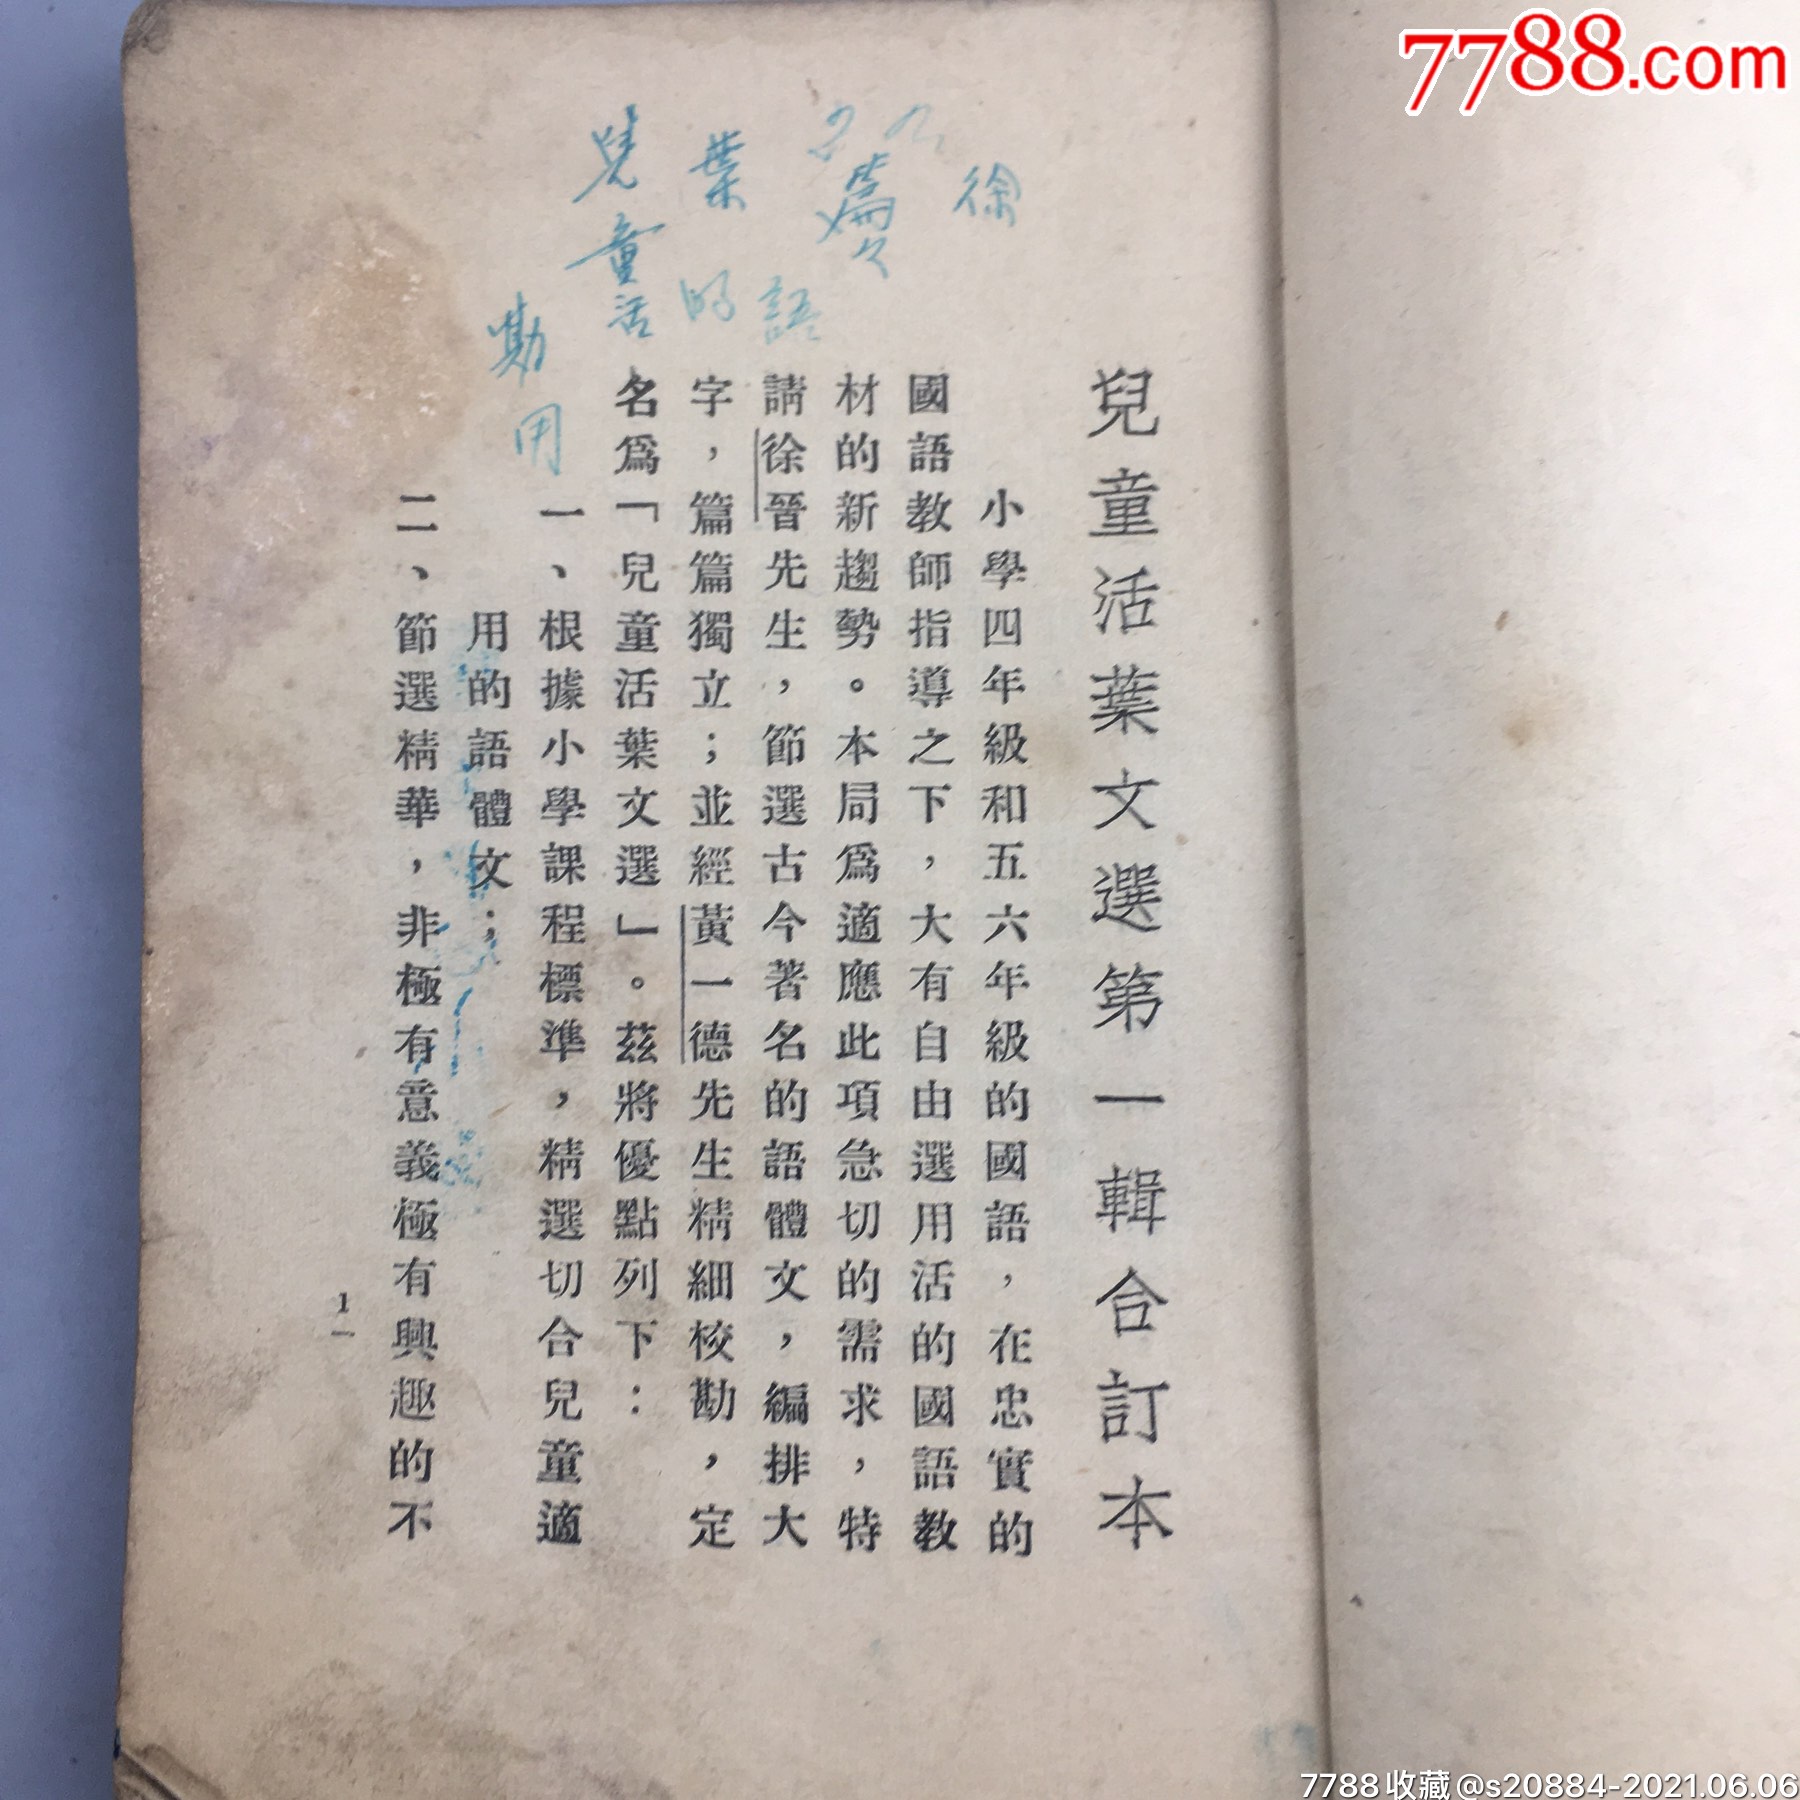 7788.com
兒童活葉文選第一輯合訂本
小學四年級和五六年級的國語，在忠實的
國語教師指導之下，大有自由選用活的國語教
材的新趨勢。本局爲適應此項急切的需求，特
請徐晉先生，節選古今著名的語體文，編排大
字，篇篇獨立；並經黃一德先生精細校勘，定
名爲「兒童活葉文選」。茲將優點列下：
一、根據小學課程標準，精選切合兒童適
用的語體文；
二、節選精華，非極有意義極有興趣的不
1
徐
語
葉
的
兒童活
用
7788收藏@s20884-2021.06.06